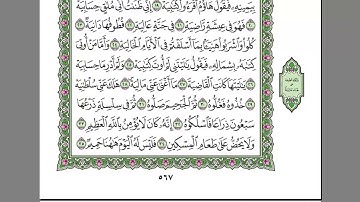 بِيَمِينِهِۦ فَيَقُولُ هَآؤُمُ ٱقۡرَءُواْ كِتَٰبِيَهۡ ١٩ إِنِّي ظَنَنتُ أَنِّي مُلَٰقٍ حِسَابِيَهۡ
٢٠ فَهُوَ فِي عِيشَةٖ رَّاضِيَةٖ ٢١ فِي جَنَّةٍ عَالِيَةٖ ٢٢ قُطُوفُهَا دَانِيَةٞ ٢٣
كُلُواْ وَٱشۡرَبُواْ هَنِيٓـَٔۢا بِمَآ أَسۡلَفۡتُمۡ فِي ٱلۡأَيَّامِ ٱلۡخَالِيَةِ ٢٤ وَأَمَّا مَنۡ أُوتِيَ
كِتَٰبَهُۥ بِشِمَالِهِۦ فَيَقُولُ يَٰلَيۡتَنِي لَمۡ أُوتَ كِتَٰبِيَهۡ ٢٥ وَلَمۡ أَدۡرِ مَا حِسَابِيَهۡ
٢٦ يَٰلَيۡتَهَا كَانَتِ ٱلۡقَاضِيَةَ ٢٧ مَآ أَغۡنَىٰ عَنِّي مَالِيَهۡۜ ٢٨ هَلَكَ عَنِّي سُلۡطَٰنِيَهۡ
٢٩ خُذُوهُ فَغُلُّوهُ ٣٠ ثُمَّ ٱلۡجَحِيمَ صَلُّوهُ ٣١ ثُمَّ فِي سِلۡسِلَةٖ ذَرۡعُهَا
سَبۡعُونَ ذِرَاعٗا فَٱسۡلُكُوهُ ٣٢ إِنَّهُۥ كَانَ لَا يُؤۡمِنُ بِٱللَّهِ ٱلۡعَظِيمِ ٣٣
وَلَا يَحُضُّ عَلَىٰ طَعَامِ ٱلۡمِسۡكِينِ ٣٤ فَلَيۡسَ لَهُ ٱلۡيَوۡمَ هَٰهُنَا حَمِيمٞ ٣٥
٥٦٧